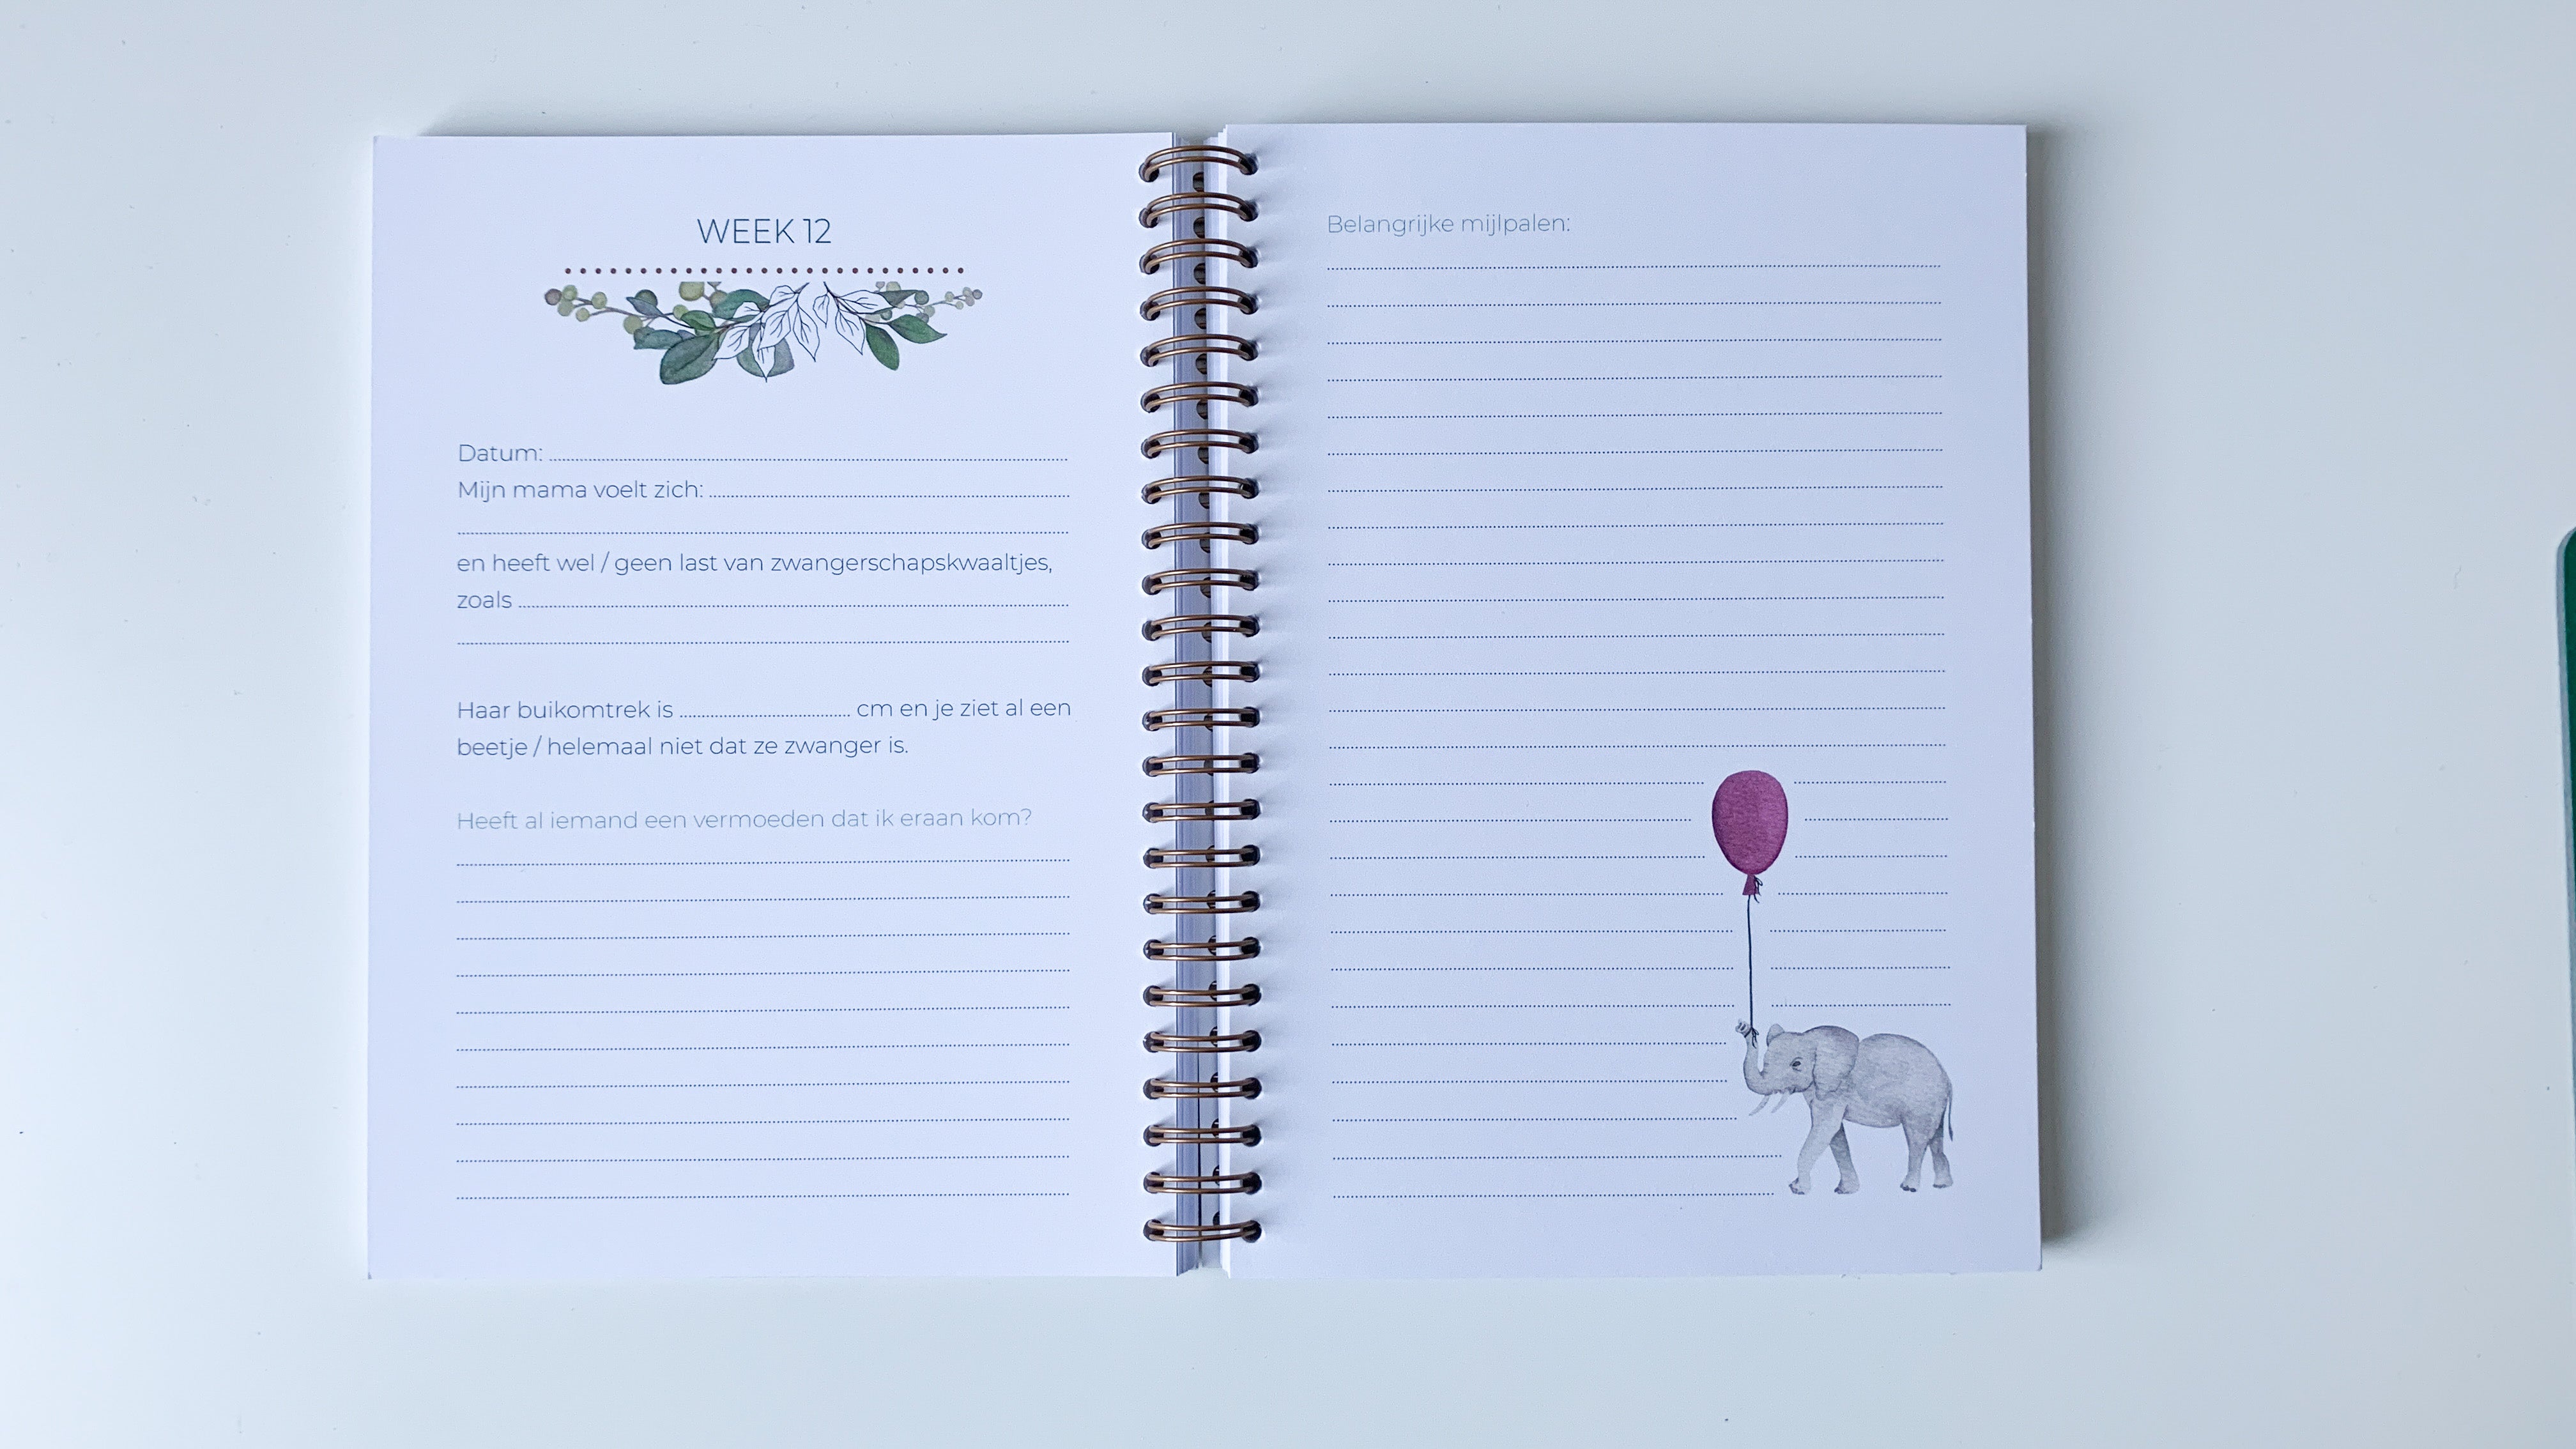 WEEK 12
Datum:
Mijn mama voelt zich:
en heeft wel / geen last van zwangerschapskwaaltjes,
zoals
Haar buikomtrek is cm en je ziet al een
beetje / helemaal niet dat ze zwanger is.
Heeft al iemand een vermoeden dat ik eraan kom?
Belangrijke mijlpalen: